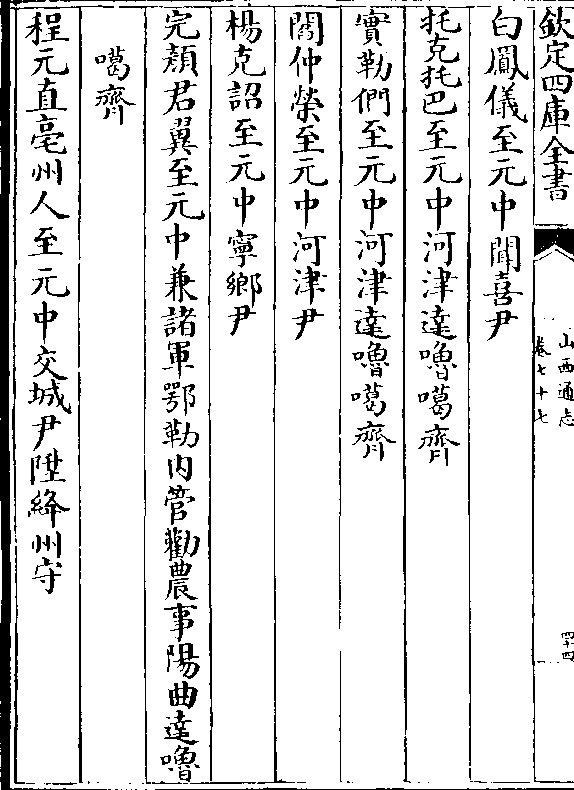 欽定四庫全書
山西通志
卷七十七
四十四
白鳳儀至元中聞喜尹
托克托巴至元中河津達嚕噶齊
實勒們至元中河津達嚕噶齊
閻仲榮至元中河津尹
楊克詔至元中寧鄉尹
完顏君翼至元中兼諸軍鄂勒內管勸農事陽曲達嚕
噶齊
程元直亳州人至元中交城尹陞絳州守